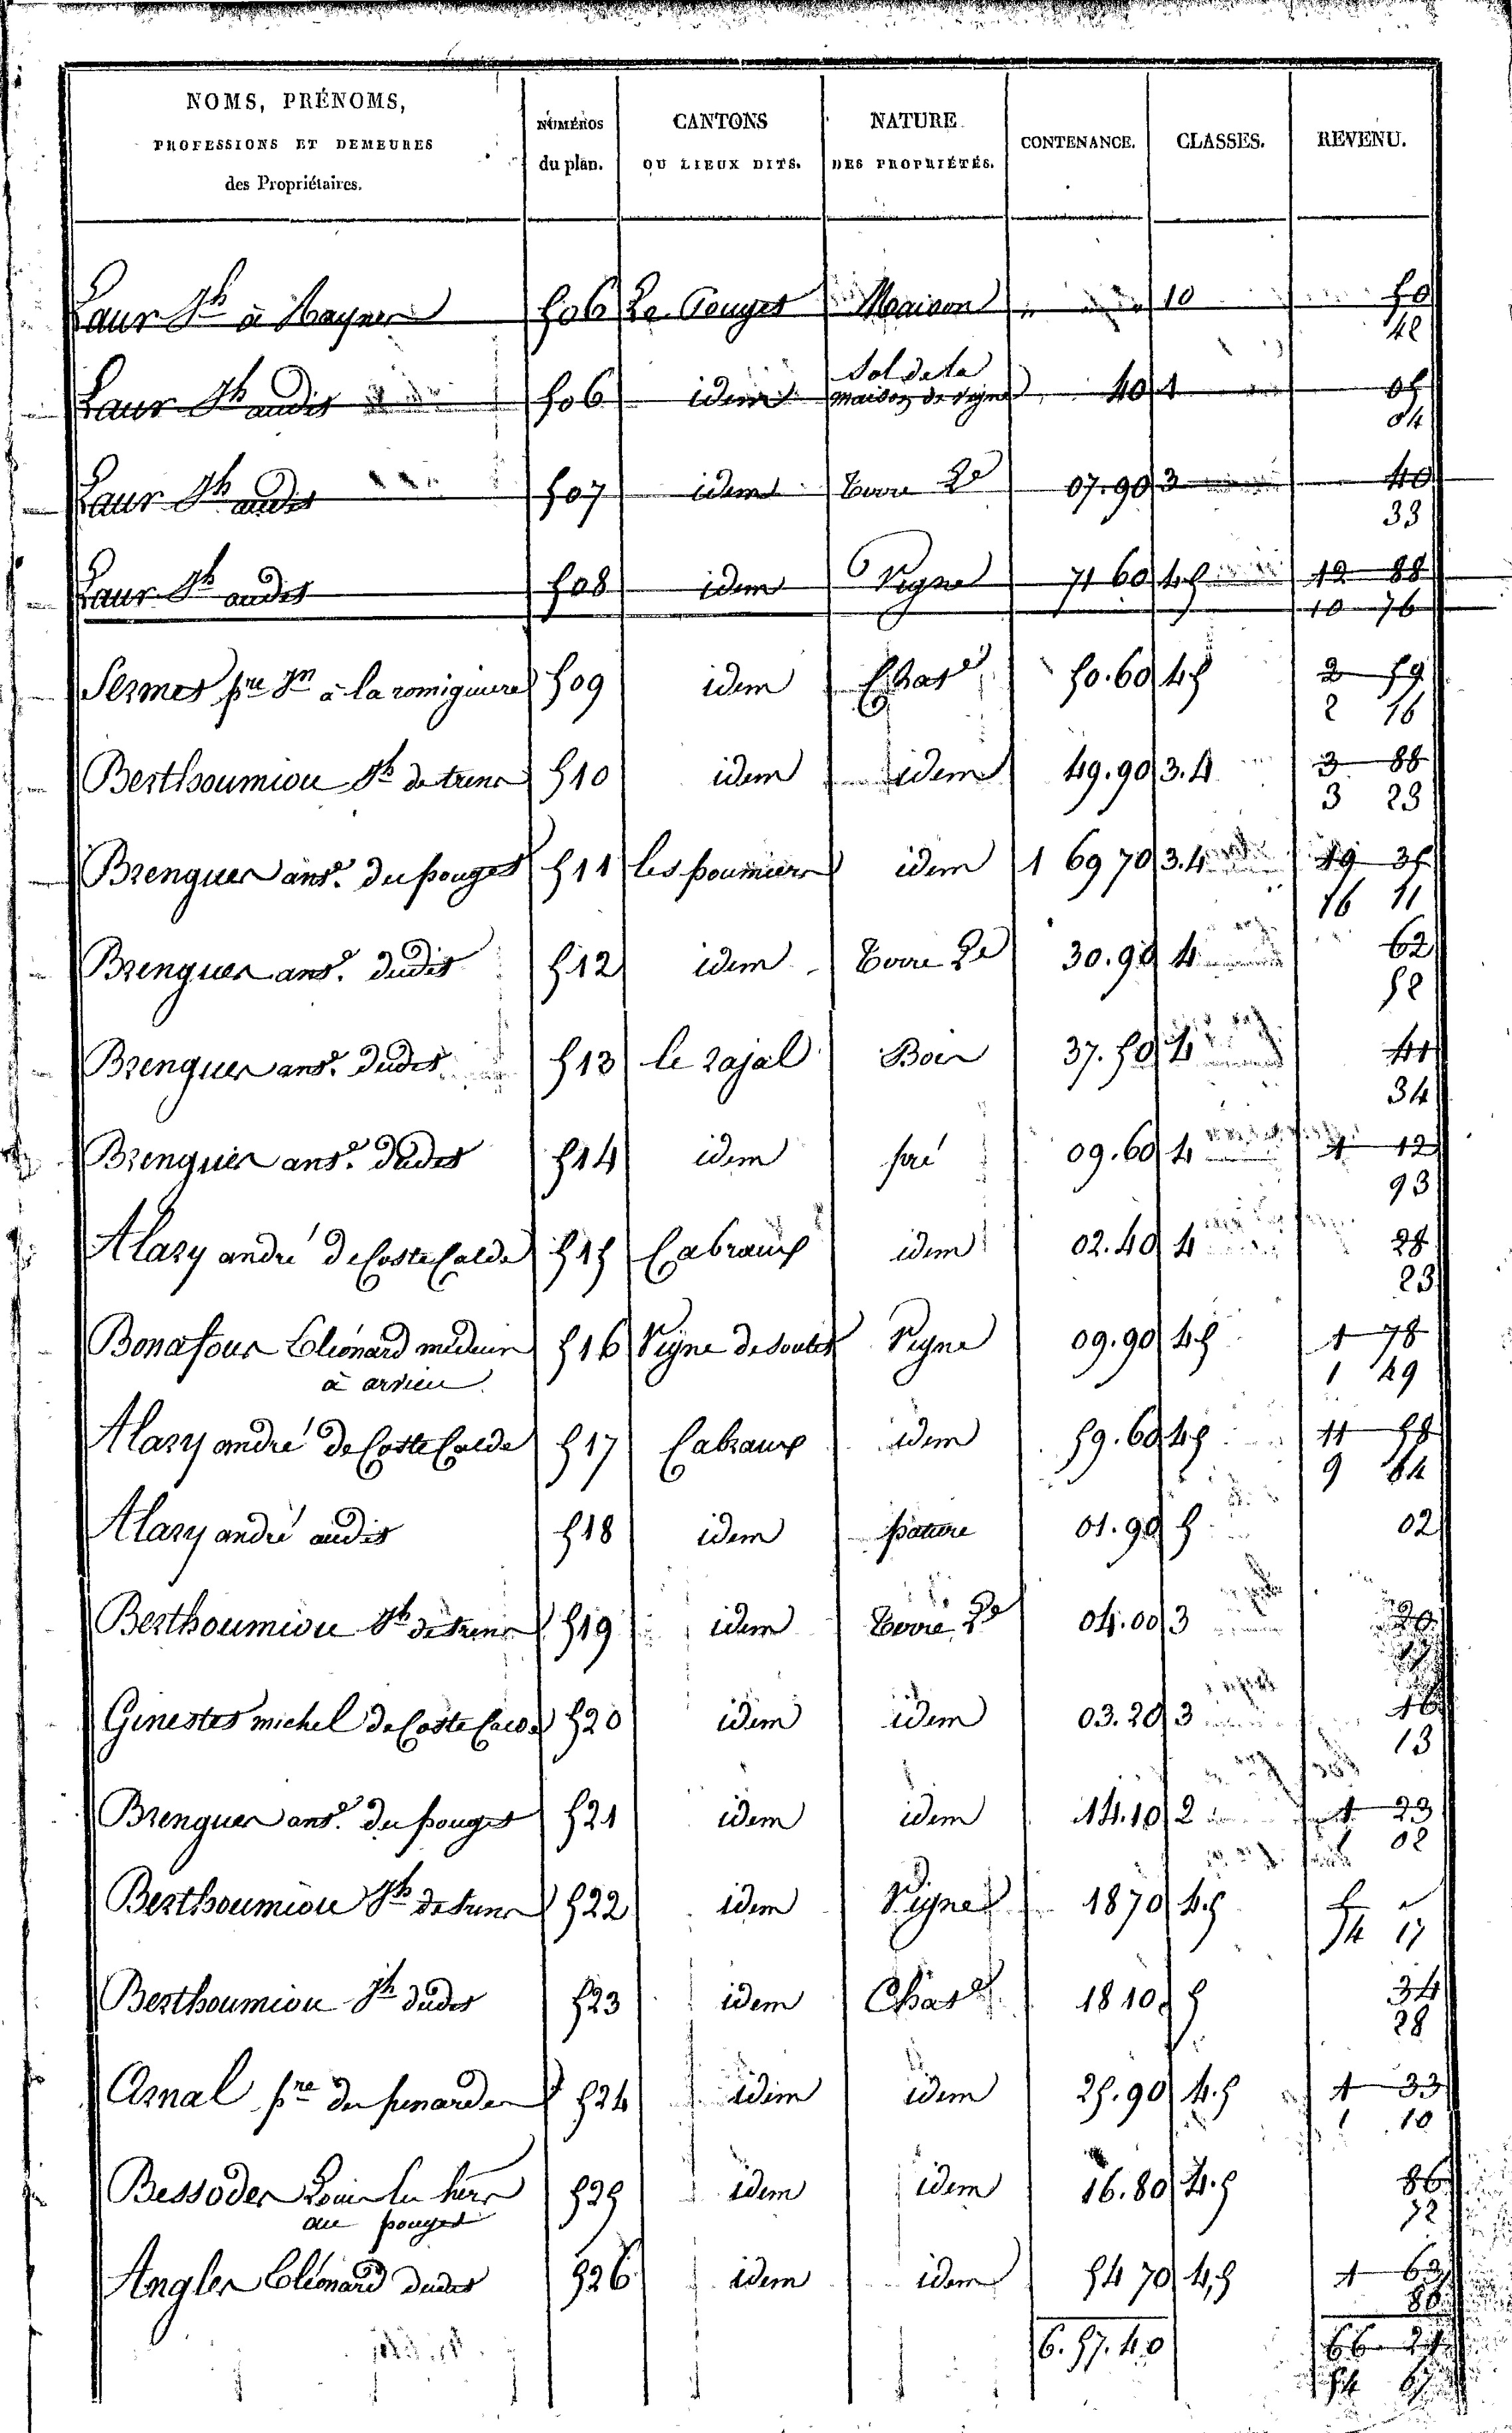 NOMS, PRÉNOMS, PROFESSIONS ET DEMEURES des Propriétaires. NUMÉROS du plan. CANTONS OU LIEUX DITS. NATURE DES PROPRIÉTÉS. CONTENANCE. CLASSES. REVENU.
Laur Jh à Mayner 506 Le Pouget Maison 10 50
42
Laur Jh audit 506 idem Sol de la maison de vigne 40 1 05
04
Laur Jh audit 507 idem Terre 07.90 3 40
33
Laur Jh audit 508 idem Vigne 71 60 4.5 12 88
10 76
Sermet pre Jn à la romiguiere 509 idem Chat 50.60 4.5 2 59
2 16
Berthoumiou Jh de trens 510 idem idem 49.90 3.4 3 88
3 23
Brenguer ant. du pouget 511 les poumiers idem 1 69 70 3.4 19 35
16 11
Brenguer ant. dudit 512 idem Terre 30.90 4 62
52
Brenguer ant. dudit 513 le rajal Bois 37.50 4 41
34
Brenguier ant. dudit 514 idem pré 09.60 4 1 12
93
Alazy andré de Coste Calde 515 Cabraux idem 02.40 4 28
23
Bonafous Léonard médecin à arvieu 516 Vigne de Vigne 09.90 4.5 1 78
1 49
Alazy andré de Coste Calde 517 Cabraux idem 59.60 4.5 11 58
9 64
Alazy andré audit 518 idem pature 01.90 5 02
Berthoumiou Jh de trens 519 idem Terre 04.00 3 20
17
Ginestet michel de Coste Calde 520 idem idem 03.20 3 16
13
Brenguer ant. du pouget 521 idem idem 14.10 2 1 23
1 02
Berthoumiou Jh de trens 522 idem Vigne 18 70 4.5 5
4 17
Berthoumiou Jh dudit 523 idem Chat 18 10 5 34
28
Arnal pre du 524 idem idem 25.90 4.5 1 33
1 10
Bessodes Louis au pouget 525 idem idem 16.80 4.5 86
72
Angles Léonard dudit 526 idem idem 54 70 4,5 1 63
6.57.40 66
54